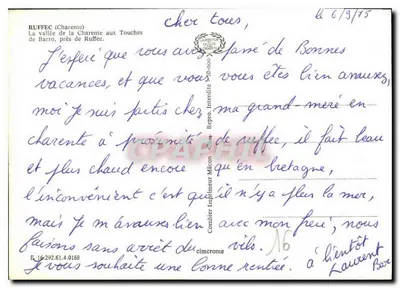 RUFFEC (Charente)
La vallée de la Charente aux Touches
de Barro, près de Ruffec.
le 6/9/75
cher tous,
J'esperé que vous avez passé de Bonnes
vacances, et que vous vous êtes bien amusez,
moi je suis partis chez ma grand-meré en
charente à proximité de ruffec, il fait beau
et plus chaud encore qu'en bretagne,
l'inconvénient c'est qu'il n'y a plus la mer,
mais je m'amuses bien avec mon freré, nous
faisons sans arrêt du vélo.
Je vous souhaite une bonne rentrée.
à bientôt
Laurent
16
E. 16.292.61.4.0168
cimcrome
Combier Imprimeur Mâcon
CPARAMA